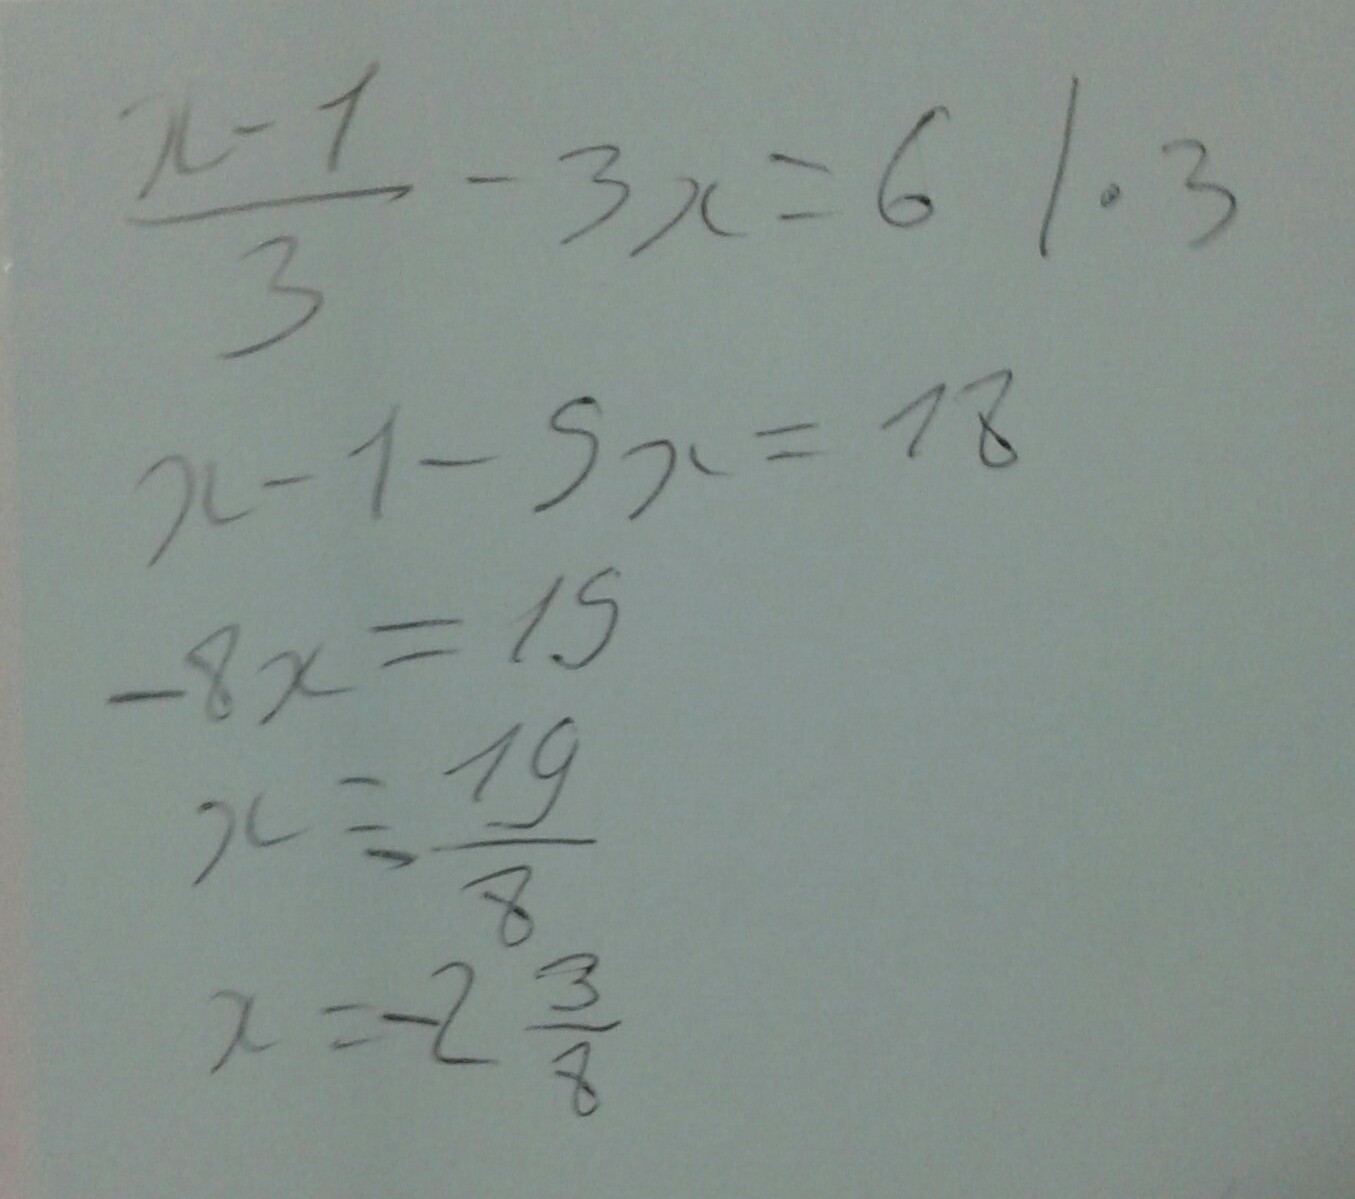 (x-1)/3 - 3x = 6 / · 3
x - 1 - 9x = 18
-8x = 19
x = -19/8
x = -2 3/8